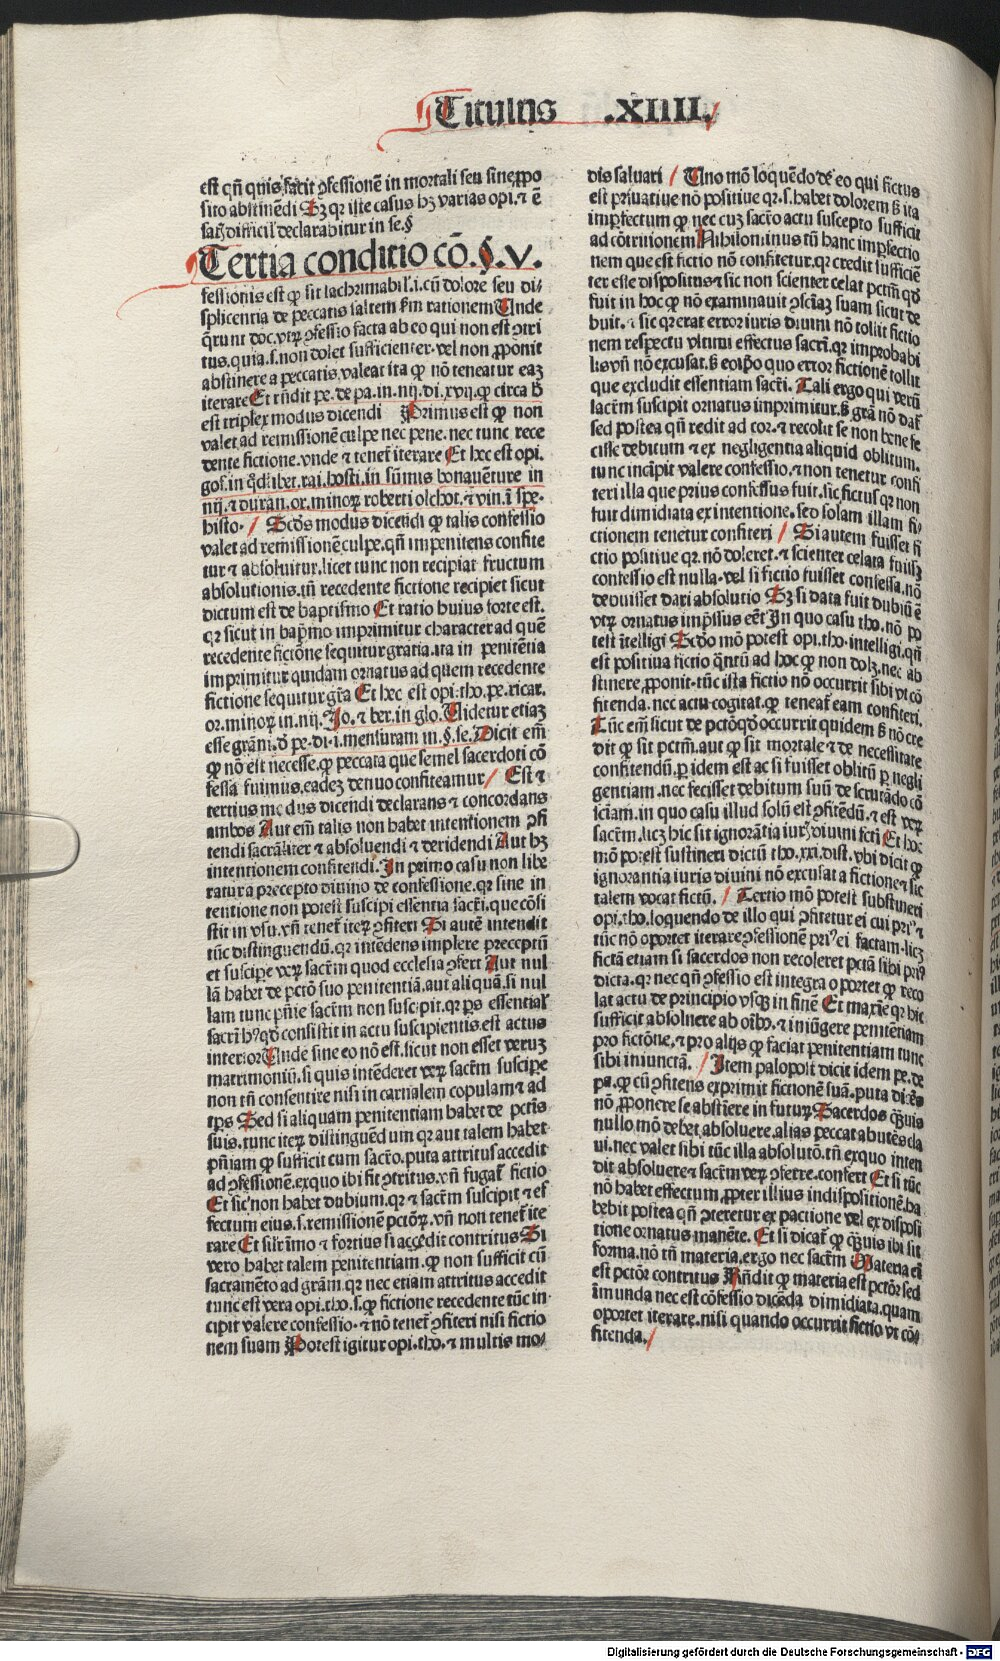 Titulus .XIIII.
est qñ quis facit ꝯfessionē in mortali seu sine ꝓpo
sito abstinēdi Sꝫ qꝛ iste casus hꝫ varias opi. ⁊ ē
satꝭ difficil' declarabitur in se. §
Tertia conditio cō. §. V.
fessionis est ꝙ sit lachrimabil'.i. cū dolore seu di⸗
splicentia de peccatis saltem ẜm rationem Unde
q̄runt doc. vtrꝫ ꝯfessio facta ab eo qui non est ꝯtri
tus. quia .s. non dolet sufficienter. vel non ꝓponit
abstinere a peccatis, valeat ita ꝙ nō teneatur eaꝫ
iterare Et rñdit pe. de pa. in .iiij. di. xvij. ꝙ circa h̄
est triplex modus dicendi Primus est ꝙ non
valet ad remissionē culpe nec pene. nec tunc rece
dente fictione. vnde ⁊ tenet̉ iterare Et hec est opi.
gof. in q̄dlibet. rai. hosti. in sūmis bonauēture in
iiij. ⁊ duran. or. minoꝝ roberti olchot. ⁊ vin. ī spe.
histo. / Scd̄s modus dicendi ꝙ talis confessio
valet ad remissionē culpe. qñ impenitens confite
tur ⁊ absoluitur. licet tunc non recipiat fructum
absolutionis. tñ recedente fictione recipiet sicut
dictum est de baptismo Et ratio huius forte est.
qꝛ sicut in bapmo imprimitur character ad quē
recedente fictiōne sequitur gratia. ita in penitētia
imprimitur quidam ornatus ad quem recedente
fictione sequitur gr̄a Et hec est opi. tho. pe. ricar.
or. minoꝝ in .iiij. Jo. ⁊ ber. in glo. Uidetur etiaꝫ
esse grāni. d̄ pe. di. i. mensuram in. §. se. Dicit em̄
ꝙ nō est necesse. ꝙ peccata que semel sacerdoti cō
fessa fuimus. eadeꝫ denuo confiteamur / Est ⁊
tertius modus dicendi declarans ⁊ concordans
ambos Aut em̄ talis non habet intentionem ꝯfi
tendi sacrāliter ⁊ absoluendi ⁊ deridendi Aut hꝫ
intentionem confitendi. In primo casu non libe
ratur a precepto diuino de confessione. qꝛ sine in
tentione non potest suscipi essentia sacr̄i. que cōsi
stit in vsu. vñ tenet̉ iteꝝ ꝯfiteri Si autē intendit
tūc distinguendū. qꝛ intēdens implere preceptū
et suscipe veꝝ sacr̄m quod ecclesia ꝯfert Aut nul
lā habet de pctō suo penitentiā. aut aliquā. si nul
lam tunc pn̄ie sacr̄m non suscipit. qꝛ ps essential'
sacr̄i hꝰ qd̄ consistit in actu suscipientis. est actus
interior Unde sine eo nō est. sicut non esset veruꝫ
matrimoniū. si quis intēderet veꝝ sacr̄m suscipe
non tñ consentire nisi in carnalem copulam ⁊ ad
tp̄s Sed si aliquam penitentiam habet de pctīs
suis. tunc iteꝝ distinguēdum qꝛ aut talem habet
pñiam ꝙ sufficit cum sacr̄o. puta attritus accedit
ad ꝯfessionē. ex quo ibi fit ꝯtritus. vñ fugat̉ fictio
Et sic non habet dubium. qꝛ ⁊ sacr̄m suscipit ⁊ ef
fectum eius. s. remissionē pctōꝝ. vñ non tenet̉ ite
rare Et sil'r īmo ⁊ fortius si accedit contritus Si
vero habet talem penitentiam. ꝙ non sufficit cū
sacramēto ad grām. qꝛ nec etiam attritus accedit
tunc est vera opi. tho. s. ꝙ fictione recedente tūc in
cipit valere confessio. ⁊ nō tenet̉ ꝯfiteri nisi fictio
nem suam Potest igitur opi. tho. ⁊ multis mo⸗
dis saluari / Uno mō loquēdo de eo qui fictus
est priuatiue nō positiue qꝛ. s. habet dolorem sꝫ ita
imꝑfectum ꝙ nec cuꝫ sacr̄o actu suscepto sufficit
ad cōtritionem Nihilominus tñ hanc imꝑfectio
nem que est fictio nō confitetur. qꝛ credit sufficiē
ter esse dispositus ⁊ sic non scienter celat pctm̄ qd̄
fuit in hoc ꝙ nō examinauit ꝯsciaꝫ suam sicut de
buit. ⁊ sic qꝛ erat error iuris diuini nō tollit fictio
nem respectu vltimi effectus sacr̄i. qꝛ improbabi
lis vñ nō excusat. sꝫ eoip̄o quo error fictionē tollit
que excludit essentiam sacr̄i. Tali ergo qui verū
sacr̄m suscipit ornatus imprimitur. sꝫ grā nō dat̉
sed postea qñ redit ad cor. ⁊ recolit se non bene fe
cisse debitum ⁊ ex negligentia aliquid oblitum.
tunc incipit valere confessio. ⁊ non tenetur confi
teri illa que prius confessus fuit. sic fictus qꝛ non
fuit dimidiata ex intentione. sed solam illam fi⸗
ctionem tenetur confiteri / Si autem fuisset fi
ctio positiue qꝛ. nō doleret. ⁊ scienter celata fuissꝫ
confessio est nulla. vel si fictio fuisset confessa. nō
debuisset dari absolutio Sꝫ si data fuit dubiū ē
vtꝝ ornatus imp̄ssus eēt In quo casu tho. nō po
test ītelligi Scd̄o mō potest opi. tho. intelligi. qñ
est positiua fictio q̄ntū ad hoc ꝙ non dolꝫ. nec ab
stinere ꝓponit. tūc ista fictio nō occurrit sibi vt cō
fitenda. nec actu cogitat. ꝙ teneat̉ eam confiteri.
Tūc em̄ sicut de pctō qd̄ occurrit quidem sꝫ nō cre
dit ꝙ sit pctm̄. aut ꝙ sit mortale ⁊ de necessitate
confitendū. ꝑ idem est ac si fuisset oblitū ꝑ negli
gentiam. nec fecisset debitum suū de scrutādo cō
sciam. in quo casu illud solū est ꝯfitēdū. ⁊ est veꝝ
sacr̄m. licꝫ hic sit ignorātia iurꝭ diuini fcti Et hoc
mō potest sustineri dictū tho. xxi. dist. vbi dicit ꝙ
ignorantia iuris diuini nō excusat a fictione ⁊ sic
talem vocat fictū. / Tertio mō potest substineri
opi. tho. loquendo de illo qui ꝯfitetur ei cui priꝰ ⁊
tūc nō oportet iterare ꝯfessionē priꝰ ei factam. licꝫ
fictā etiam si sacerdos non recoleret pctā sibi priꝰ
dicta. qꝛ nec qñ ꝯfessio est integra oportet ꝙ reco
lat actu de principio vsqꝫ in finē Et maxīe qꝛ hic
sufficit absoluere ab oībꝰ. ⁊ iniūgere penitētiam
pro fictiōne. ⁊ pro alijs ꝙ faciat penitentiam tunc
sibi iniunctā. / Item palopoli dicit idem pe. de
pa. ꝙ cū ꝯfitens exprimit fictionē suā. puta dicēs
nō ꝓponere se abstīere in futuꝝ Sacerdos qͣuis
nullo mō debet absoluere. alias peccat abutēs cla
ui. nec valet sibi tūc illa absolutō. tñ ex quo inten
dit absoluere ⁊ sacr̄m veꝝ ꝯferre. confert Et si tūc
nō habet effectum ꝓpter illius indispositionē. ha
bebit postea qñ ꝯteretur ex pactione vel ex disposi
tione ornatus manēte. Et si dicat̉ ꝙ qͣuis ibi sit
forma. nō tñ materia. ergo nec sacr̄m Materia em̄
est pctōr contritus Rñdit ꝙ materia est pctōr sed
īmunda nec est cōfessio dicēda dimidiata. quam
oportet iterare. nisi quando occurrit fictio vt cō⸗
fitenda. /
Digitalisierung gefördert durch die Deutsche Forschungsgemeinschaft - DFG